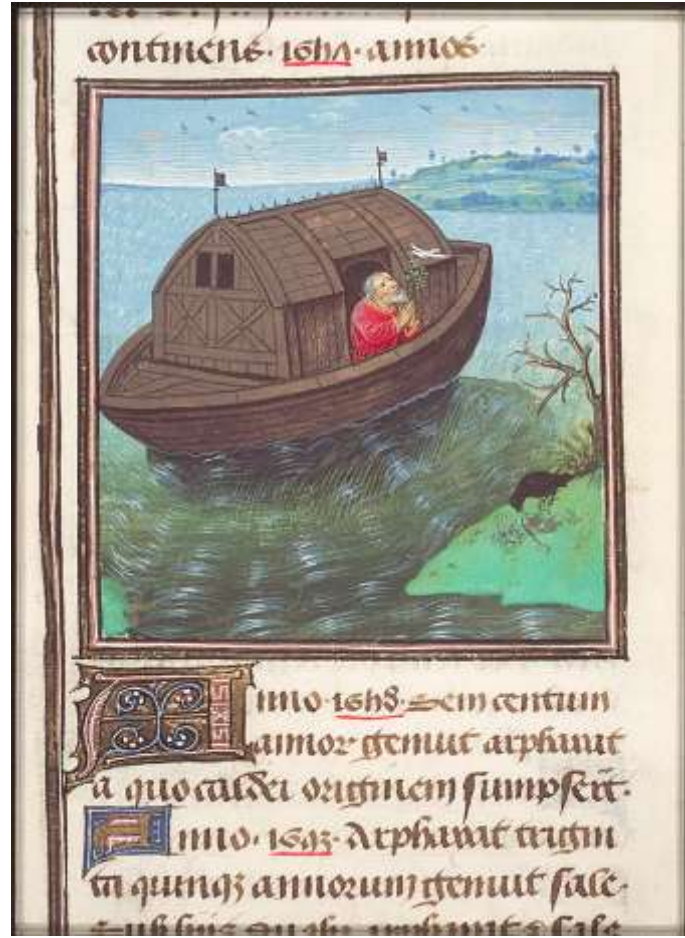 continens. 1657. annos.
Anno. 1658. Sem centum
annor genuit arphaxat
a quo caldei originem sumpserūt.
Anno. 1693. Arphaxat trigin
ta quinqꝫ annorum genuit sale.